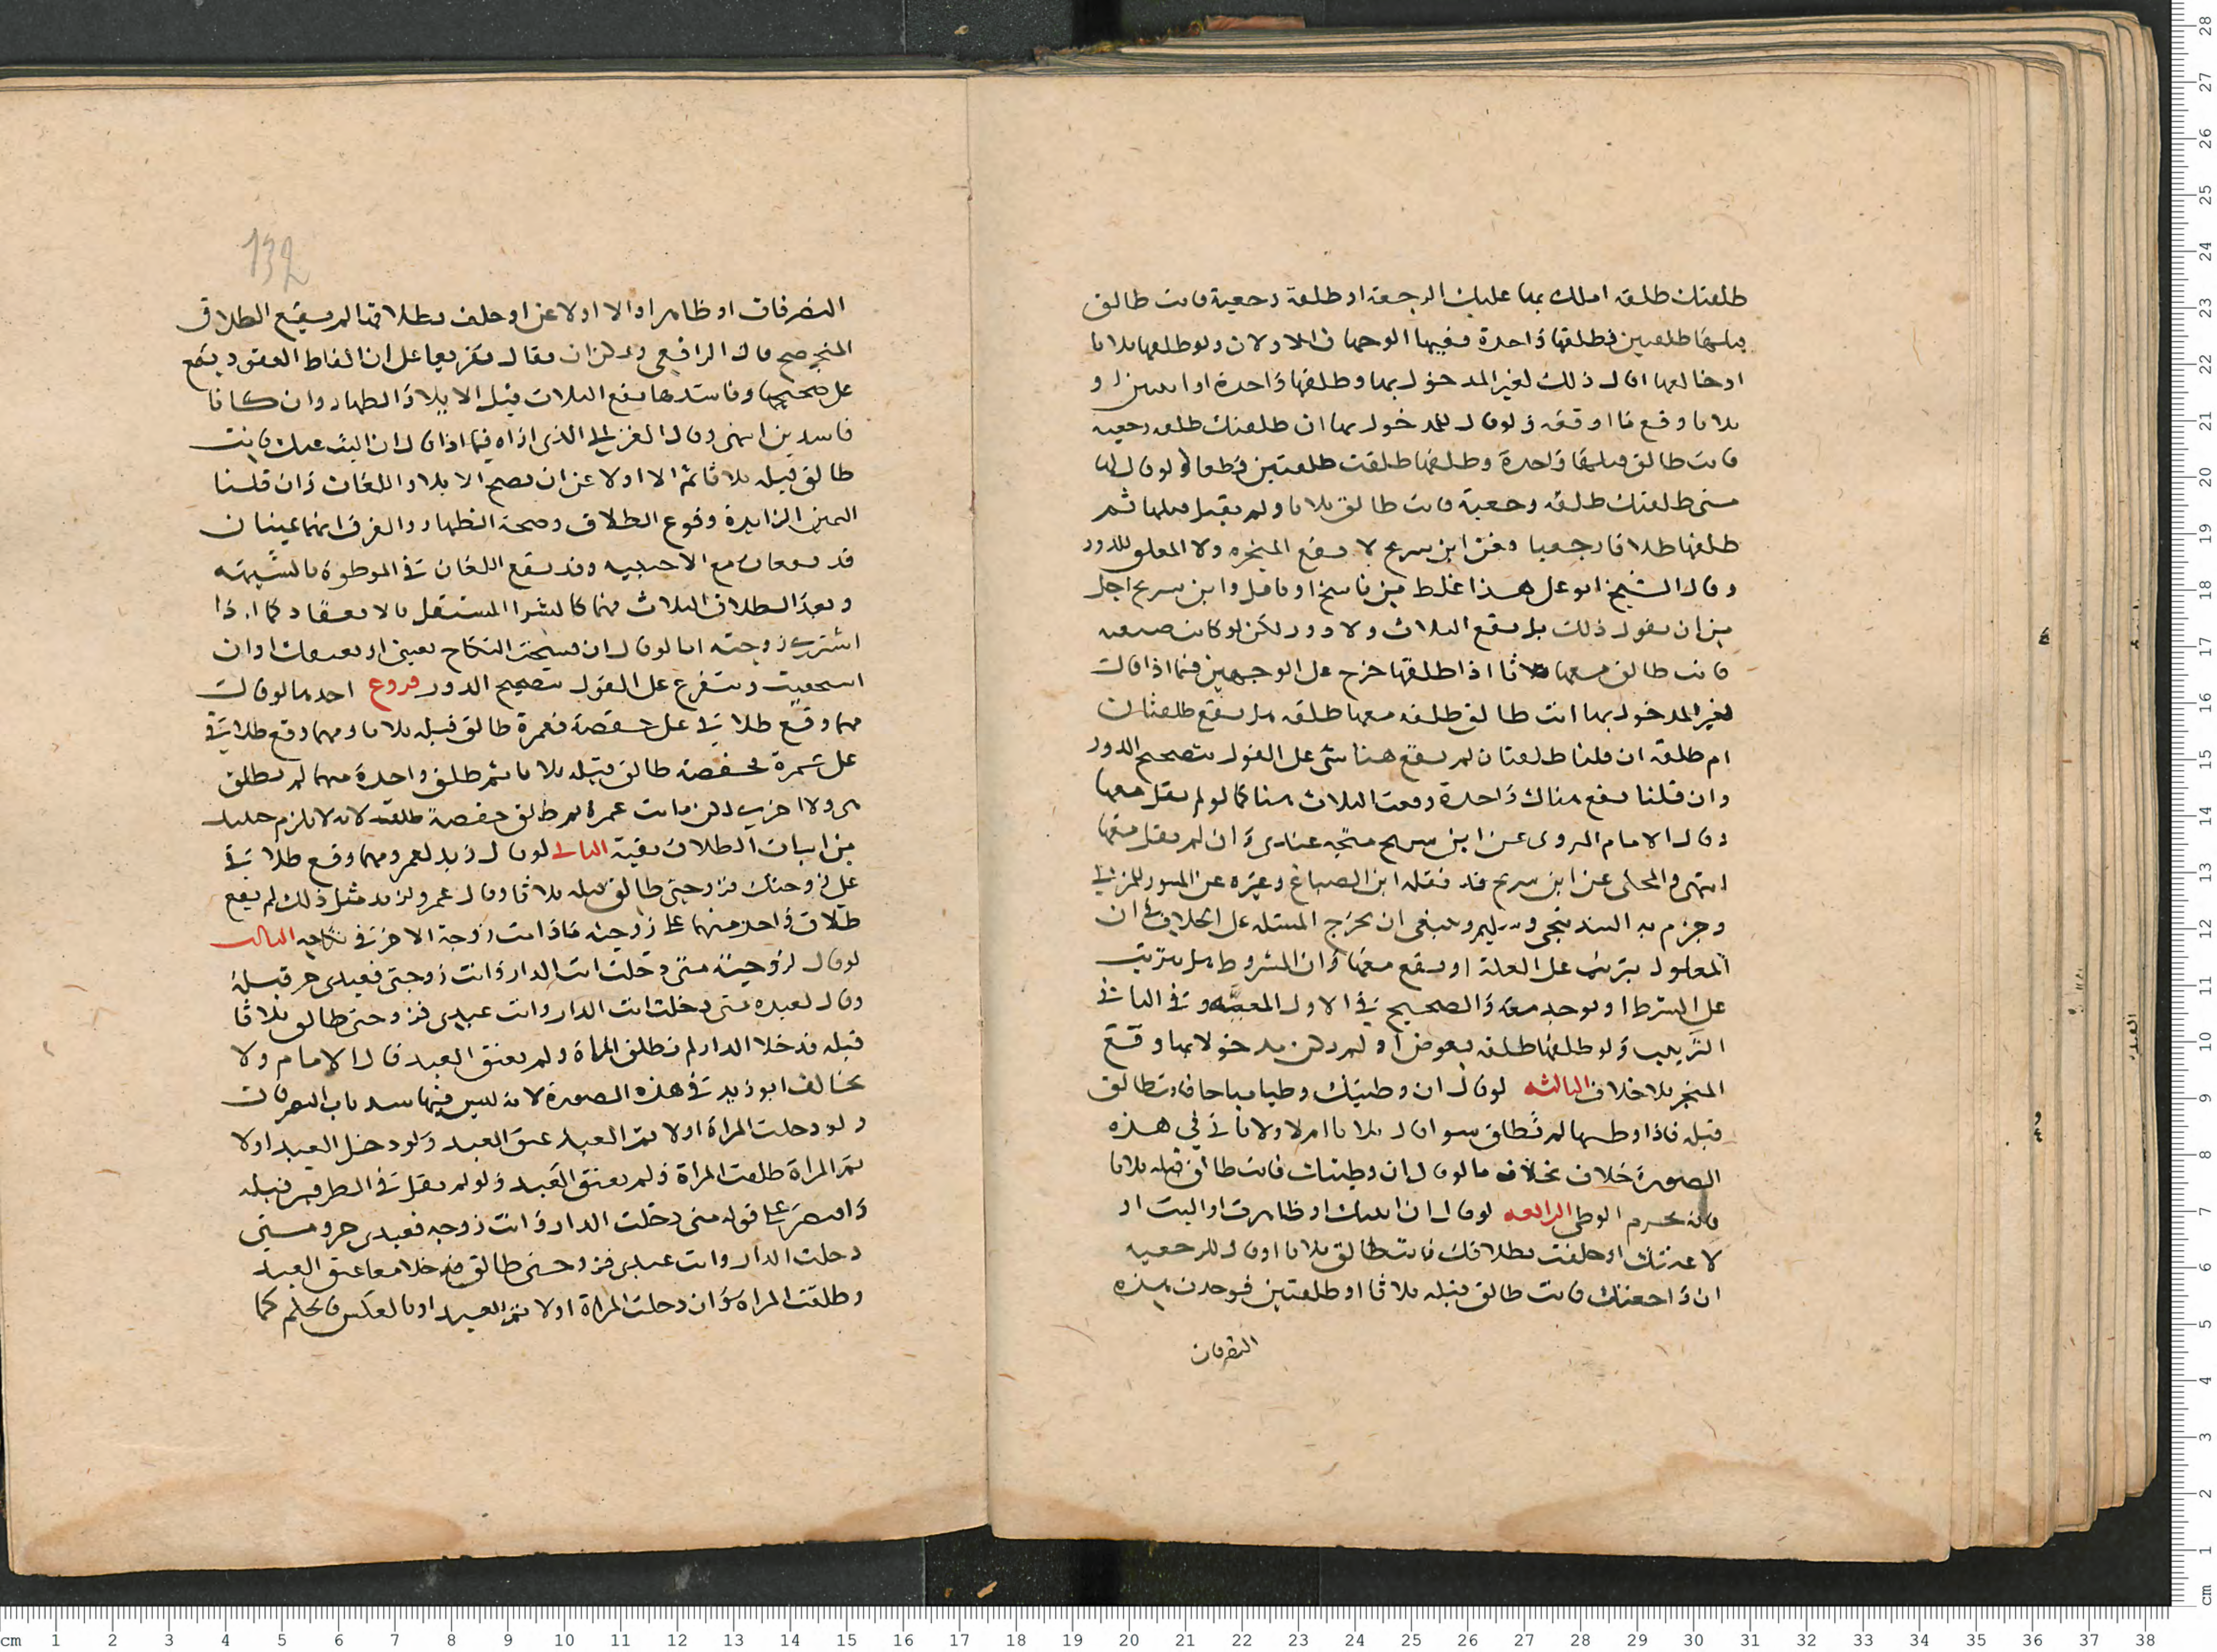 طلقتك طلقة املك بها عليك الرجعة او طلقة رجعية فانت طالق
قبلها طلقتين فطلقها واحدة ففيها الوجهان الاولان ولو طلقها ثلاثا
او خالعها او قال ذلك لغير المدخول بها وطلقها واحدة او اثنتين او
ثلاثا وقع ما اوقعه ولو قال للمدخول بها ان طلقتك طلقة رجعية
فانت طالق قبلها واحدة وطلقها طلقت طلقتين قطعا ولو قال لها
متى طلقتك طلقة رجعية فانت طالق ثلاثا ولم يقبل قبلها ثم
طلقها طلاقا رجعيا فعن ابن سريج لا يقع المنجزه ولا المعلق للدور
وقال الشيخ ابو على هذا غلط من ناسخ او ناقل وابن سريج اجل
من ان يقول ذلك بل يقع الثلاث ولا دور لكن لو كانت صيغته
فانت طالق معها ثلاثا اذا طلقتها خرج على الوجهين فيما اذا قالت
لغير المدخول بها انت طالق طلقة معها طلقة هل يقع طلقتان
ام طلقة ان قلنا طلقتان لم يقع هنا شى على القول بتصحيح الدور
وان قلنا يقع هناك واحدة وقعت الثلاث هنا كما لو لم يقل معها
وقال الامام المروى عن ابن سريج متجه عندى وان لم يقل معها
انتهى والمحكى عن ابن سريج قد نقله ابن الصباغ وغيره عن المنثور للمزنى
وجزم به البندنيجى وسليم وينبغى ان يخرج المسئلة على الخلاف فى ان
المعلول يترتب على العلة او يقع معها وان المشروط هل يترتب
على الشرط او يوجد معه والصحيح فى الاول المعية وفى الثانى
الترتيب ولو طلقها طلقة بعوض او لم يكن مدخولا بها وقع
المنجز بلا خلاف الثالثه لو قال ان وطيتك وطيا مباحا فانت طالق
قبله فاذا وطيها لم تطلق سوا قال ثلاثا ام لا ولا ياتى فى هذه
الصورة خلاف بخلاف ما لو قال ان وطيتك فانت طالق قبله ثلاثا
فانه يحرم الوطى الرابعه لو قال ان اليتك او ظاهرت او اليت او
لاعنتك او حلفت بطلاقك فانت طالق ثلاثا او قال للرجعيه
ان راجعتك فانت طالق قبله ثلاثا او طلقتين فوجدت هذه
التصرفات
132
التصرفات او ظاهر او الا او لاعن او حلف بطلاقها لم يقع الطلاق
المنجز صح قال الرافعى ويمكن ان يقال تفريعا على ان الفاظ العقود يقع
على صحيحها وفاسدها يقع الثلاث قبل الايلا والظهار وان كانا
فاسدين انتهى وقال الغزالى الذى اراه فيما اذا قال ان اليت عنك فانت
طالق قبله ثلاثا ثم الا او لاعن ان يصح الايلا واللعان وان قلنا
اليمين الزايدة وقوع الطلاق وصحة الظهار والفرق انهما يمينان
قد يقعان مع الاجنبيه وقد يقع اللعان فى الموطوة بالشبهه
وبعد الطلاق الثلاث فهما كالشرا المستقل بالانعقاد كما اذا
اشترى زوجته اما لو قال ان فسخت النكاح بعيبى او بعيبك او ان
استحقيت ويتفرع على القول بتصحيح الدور فروع احدها لو قالت
مهما وقع طلاقى على حفصة فعمرة طالق قبله ثلاثا ومهما وقع طلاقى
على عمرة فحفصة طالق قبله ثلاثا ثم طلق واحدة منهما لم تطلق
هى ولا الاخرى لكن ماتت عمرة ثم طالق حفصة طلقت لانه لا يلزم حينيذ
من اثبات الطلاق نفيه الثانى لو قال زيد لعمرو مهما وقع طلاقى
على زوجتك فزوجتى طالق قبله ثلاثا وقال عمرو لزيد مثل ذلك لم يقع
طلاق واحد منهما على زوجته ما دامت زوجة الاخر فى نكاحه الثالث
لو قال لزوجته متى دخلت انت الدار وانت زوجتى فعبدى حر قبله
وقال لعبده متى دخلت انت الدار وانت عبدى فزوجتى طالق ثلاثا
قبله فدخلا الدار لم تطلق المراة ولم يعتق العبد قال الامام ولا
يخالف ابو زيد فى هذه الصورة لانه ليس فيها سد باب التصرفات
ولو دخلت المراة اولا ثم العبد عتق العبد ولو دخل العبد اولا
ثم المراة طلقت المراة ولم يعتق العبد ولو لم يقل فى الطرفين قبله
واقتصر على قوله متى دخلت الدار وانت زوجه فعبدى حر ومتى
دخلت الدار وانت عبدى فزوجتى طالق فدخلا معا عتق العبد
وطلقت المراة وان دخلت المراة اولا ثم العبد او بالعكس فالحكم كما